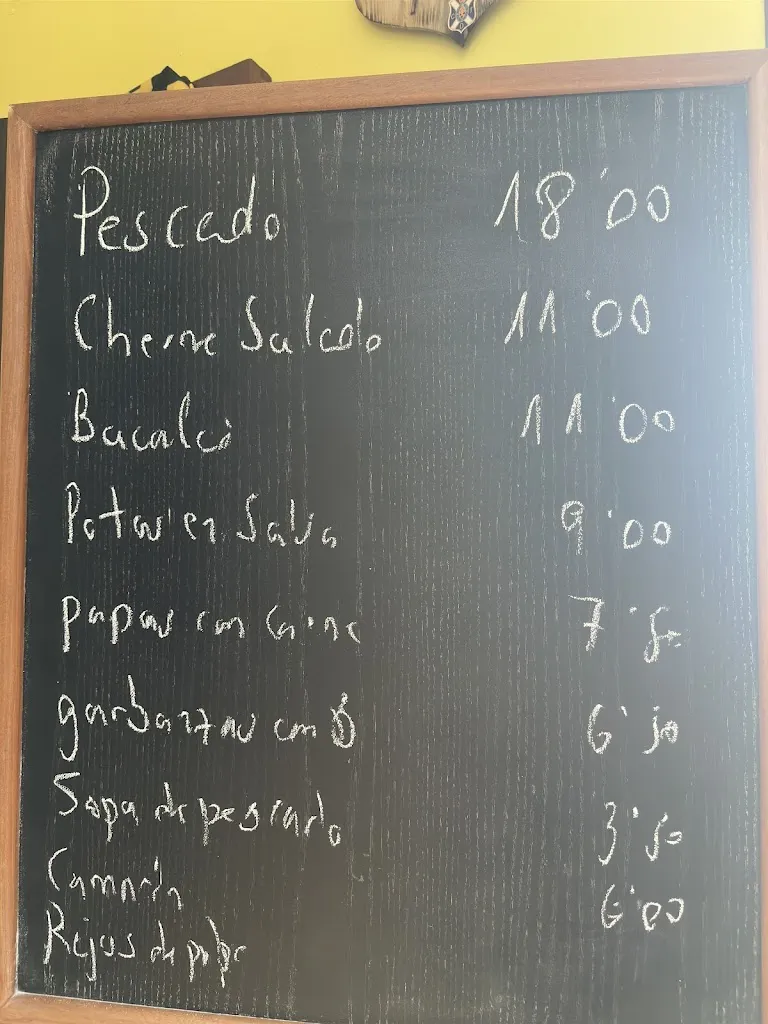 Pescado 18'00
Cherne Salado 11'00
Bacalao 11'00
Potas en Salsa 9'00
papas con Carne 7'50
garbanzas con
Sopa de pescado 3'50
Camarón 6'00
Rejos de pulpo